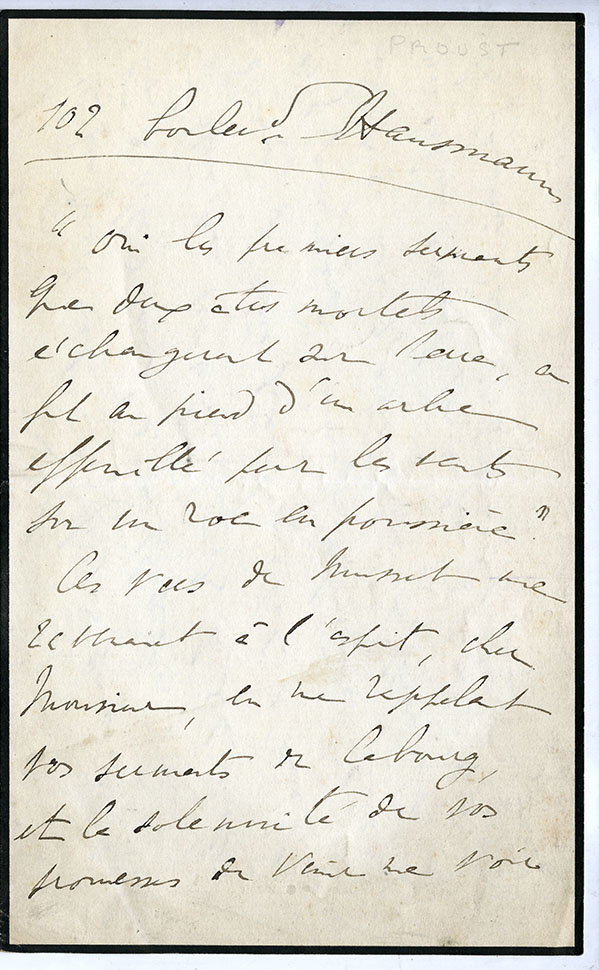 PROUST
102 boulevd Haussmann
" Oui les premiers serments
que deux êtres mortels
échangèrent sur terre, ce
fut au pied d'un arbre
effeuillé par les vents
sur un roc en poussière "
Ces vers de Musset me
revenaient à l'esprit, cher
Monsieur, en me rappelant
vos serments de Cabourg,
et la solennité de vos
promesses de venir me voir